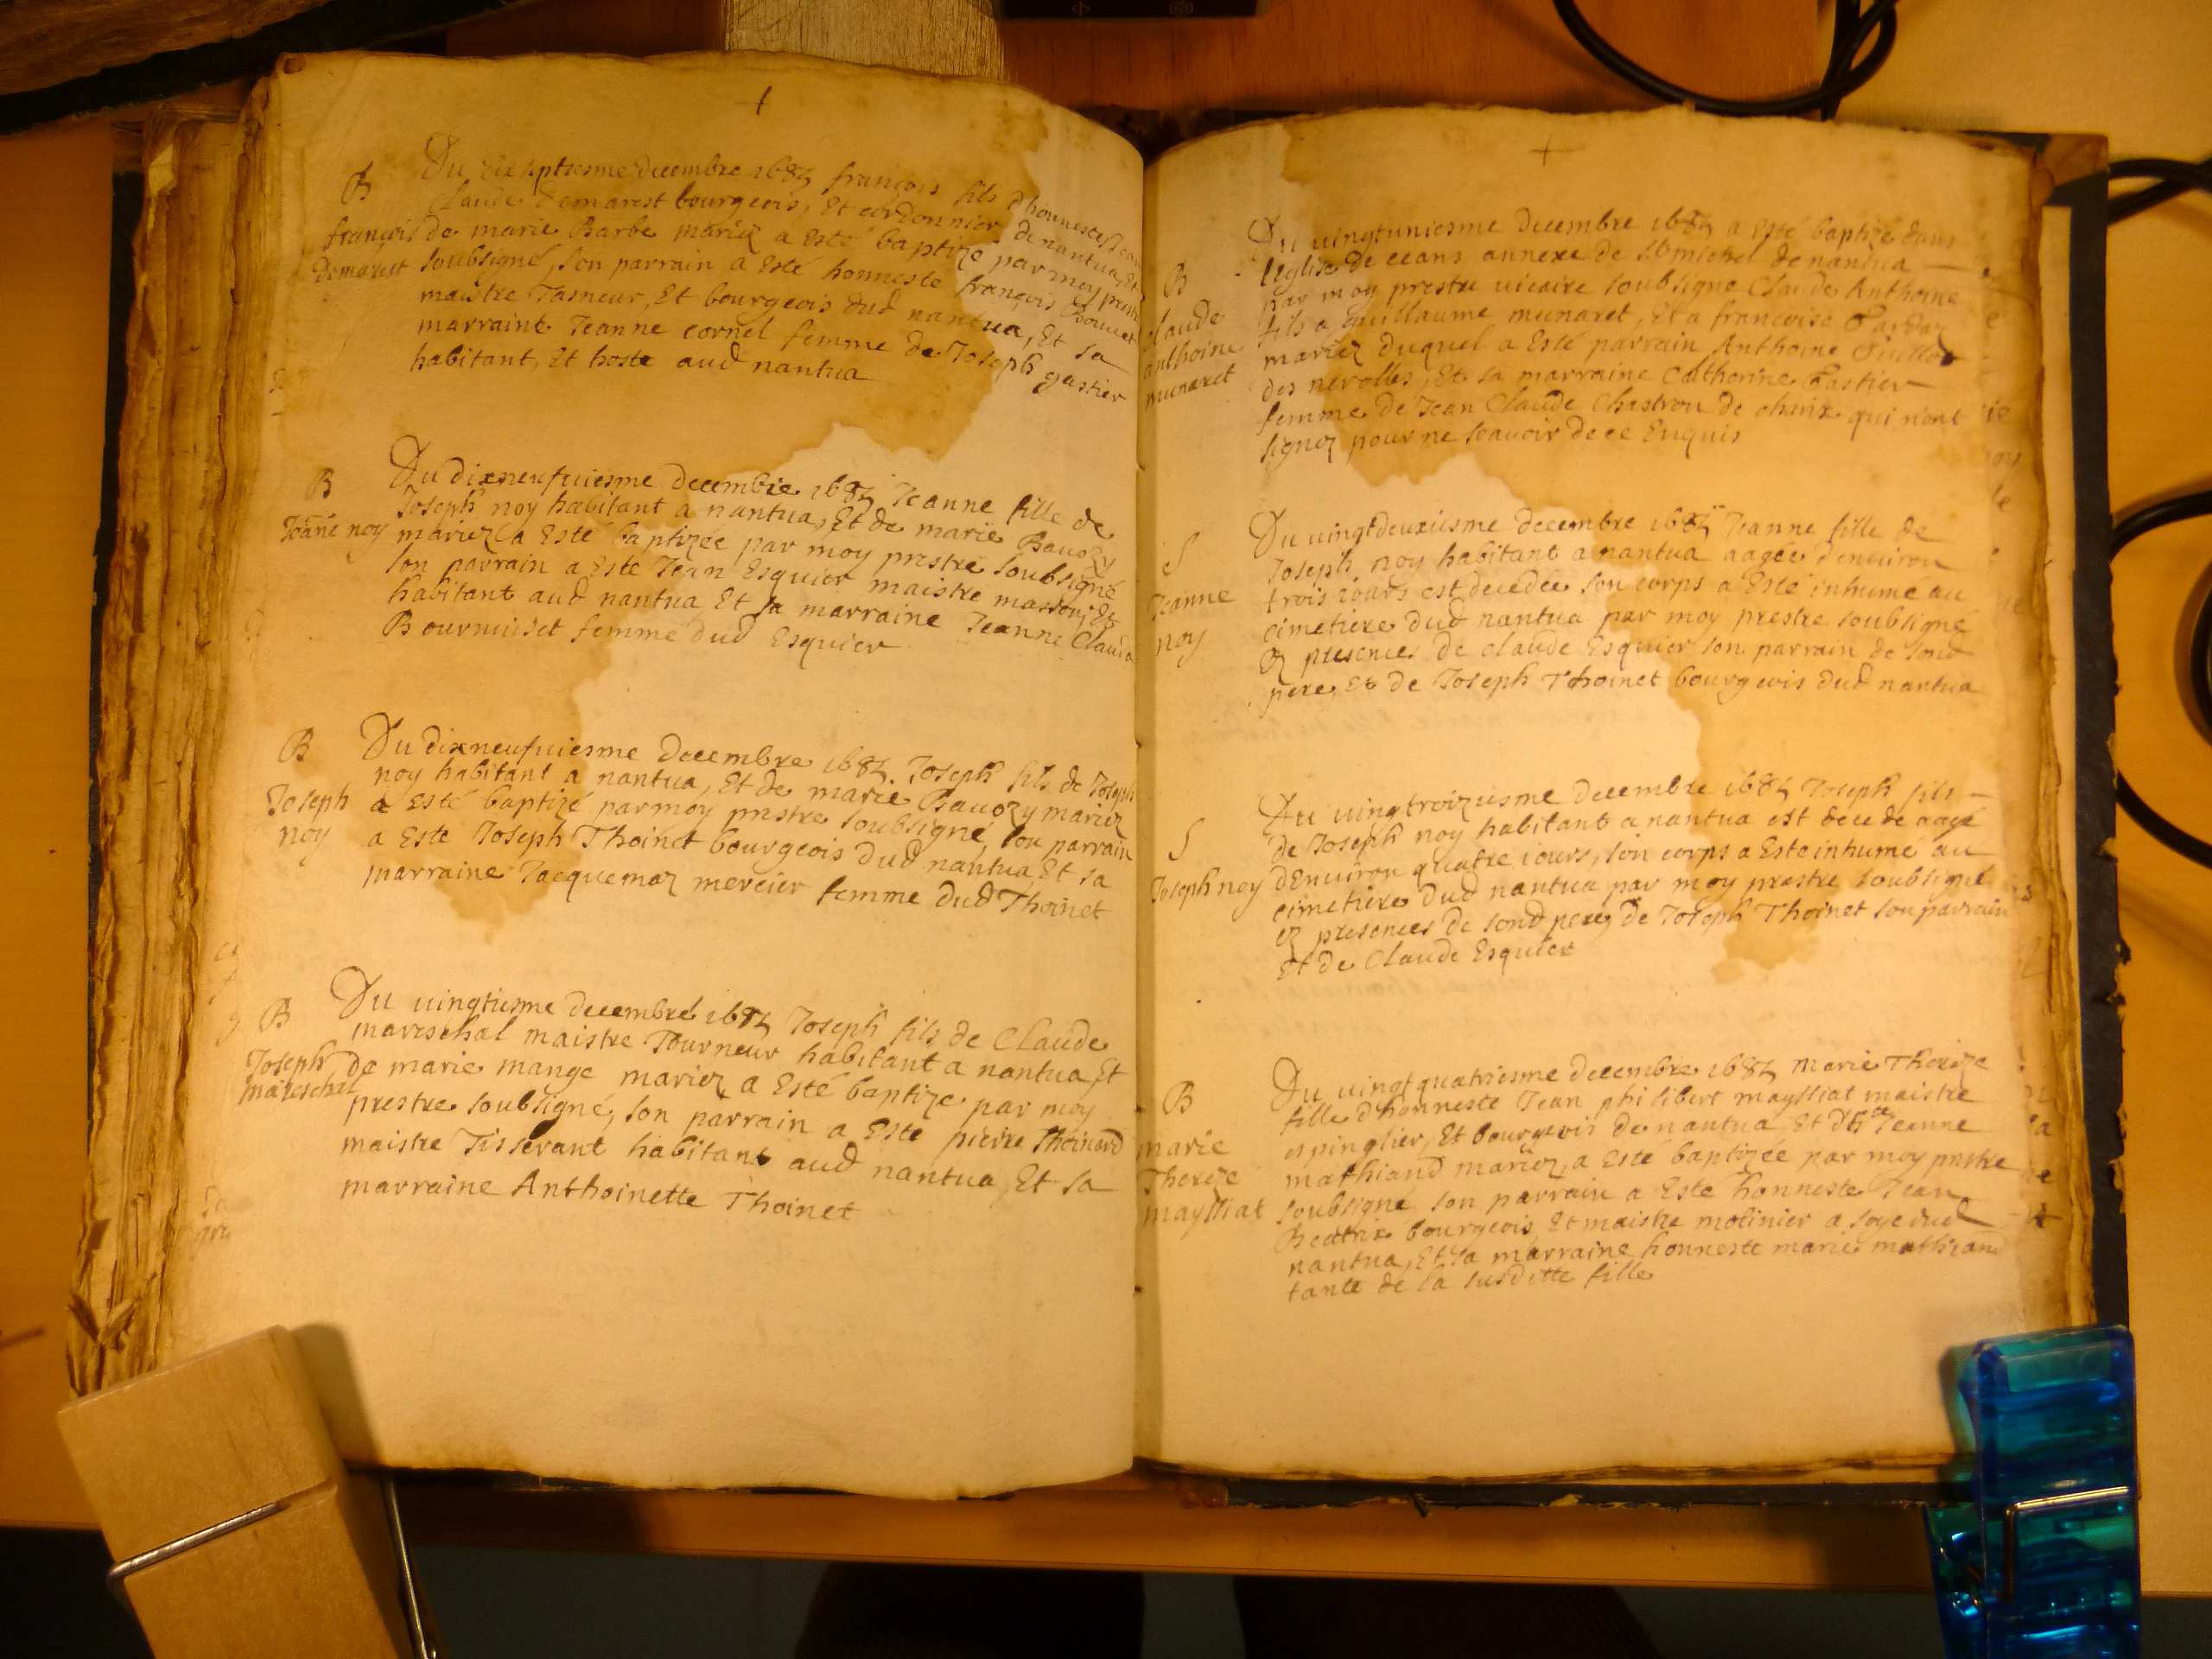 +
B
françois
Demarest
Du dixseptiesme decembre 1685 françois fils d'honneste Jean
Claude Demarest bourgeois, Et cordonnier de nantua, Et
de marie Barbe mariez a Esté baptize par moy prestre
soubsigné, son parrain a Esté honneste françois Bouvet
maistre Tasneur, Et bourgeois dud nantua, Et sa
marraine Jeanne cornel femme de Joseph gastier
habitant, Et hoste aud nantua
B
Jeane noy
Du dixneufuiesme decembre 1685 Jeanne fille de
Joseph noy habitant a nantua, Et de marie Bauozy
mariez a Esté baptizée par moy prestre soubsigné
son parrain a Esté Jean Esquier maistre masson, Et
habitant aud nantua Et sa marraine Jeanne Clauda
femme dud Esquier
B
Joseph
noy
Du dixneufuiesme decembre 1685 Joseph fils de Joseph
noy habitant a nantua, Et de marie Bauozy mariez
a Esté baptizé par moy prestre soubsigné, son parrain
a Este Joseph Thoinet bourgeois dud nantua Et sa
marraine Jacquemaz mercier femme dud Thoinet
B
Joseph
mareschal
Du uingtiesme decembre 1685 Joseph fils de Claude
mareschal maistre Tourneur habitant a nantua, Et
de marie mange mariez a Esté baptize par moy
prestre soubsigné, son parrain a Este pierre Thoinard
maistre Tisserant habitant aud nantua, Et sa
marraine Anthoinette Thoinet
+
B
Claude
anthoine
munaret
Du uingtuniesme decembre 1685 a Esté baptizé dans
l'eglise de ceans annexe de st michel de nantua
par moy prestre uicaire soubsigne Claude Anthoine
fils a guillaume munaret, Et a francoise
mariez duquel a Esté parrain Anthoine
des nerolles, Et sa marraine Catherine Pastier
femme de Jean Claude Chastron de charix qui n'ont
signez pour ne scauoir de ce Enquis
S
Jeanne
noy
Du uingtdeuxiesme decembre 1685 Jeanne fille de
Joseph noy habitant a nantua aagée d'enuiron
trois iours est decedée son corps a Esté inhumé au
cimetiere dud nantua par moy prestre soubsigne
Ez presences de claude Esquier son parrain de sond
pere, Et de Joseph Thoinet bourgeois dud nantua
S
Joseph noy
Du uingtroiziesme decembre 1685 Joseph fils
de Joseph noy habitant a nantua est decedé aagé
d'Enuiron quatre iours, son corps a Este inhumé au
cimetiere dud nantua par moy prestre soubsigné
ez presences de sond pere, de Joseph Thoinet son parrain
Et de Claude Esquier
B
marie
Therize
maylliat
Du uingtquatriesme decembre 1685 marie Therize
fille d'honneste Jean philibert maylliat maistre
espinglier, Et bourgeois de nantua Et d'hte Jeanne
mathiand mariez, a Esté baptizée par moy prestre
soubsigné son parrain a Este honneste Jean
Beatrix bourgeois, Et maistre molinier a soye dud
nantua, Et sa marraine honneste marie mathiand
tante de la susditte fille